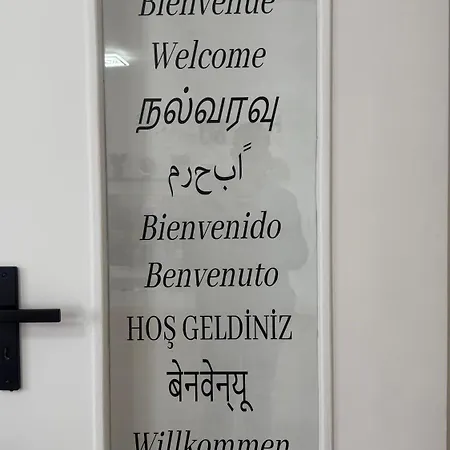 Bienvenue
Welcome
நல்வரவு
اًبحرم
Bienvenido
Benvenuto
HOŞ GELDİNİZ
बेनवेन्‌यू
Willkommen